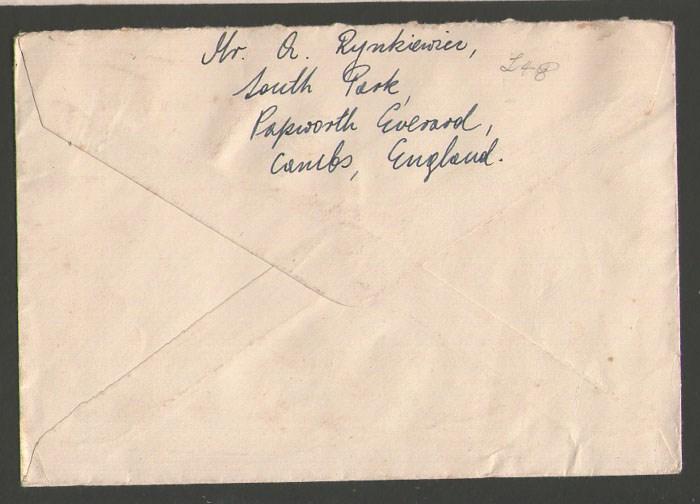 Mr. A. Rynkiewicz,
South Park,
Papworth Everard,
Cambs, England.